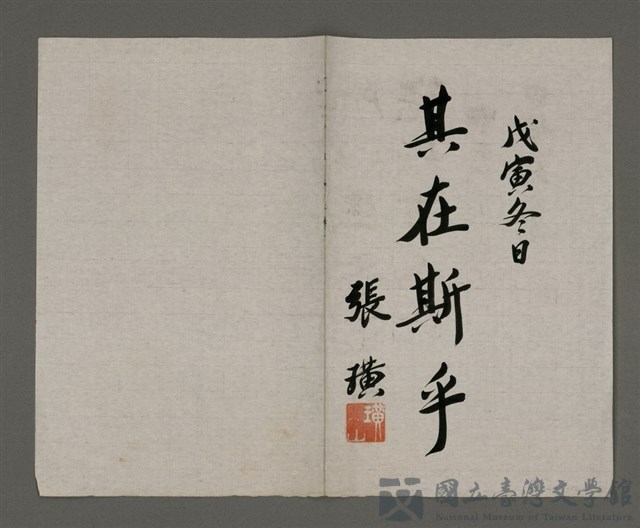 戊寅冬日
其在斯乎
張璜
國立臺灣文學館
National Museum of Taiwan Literature